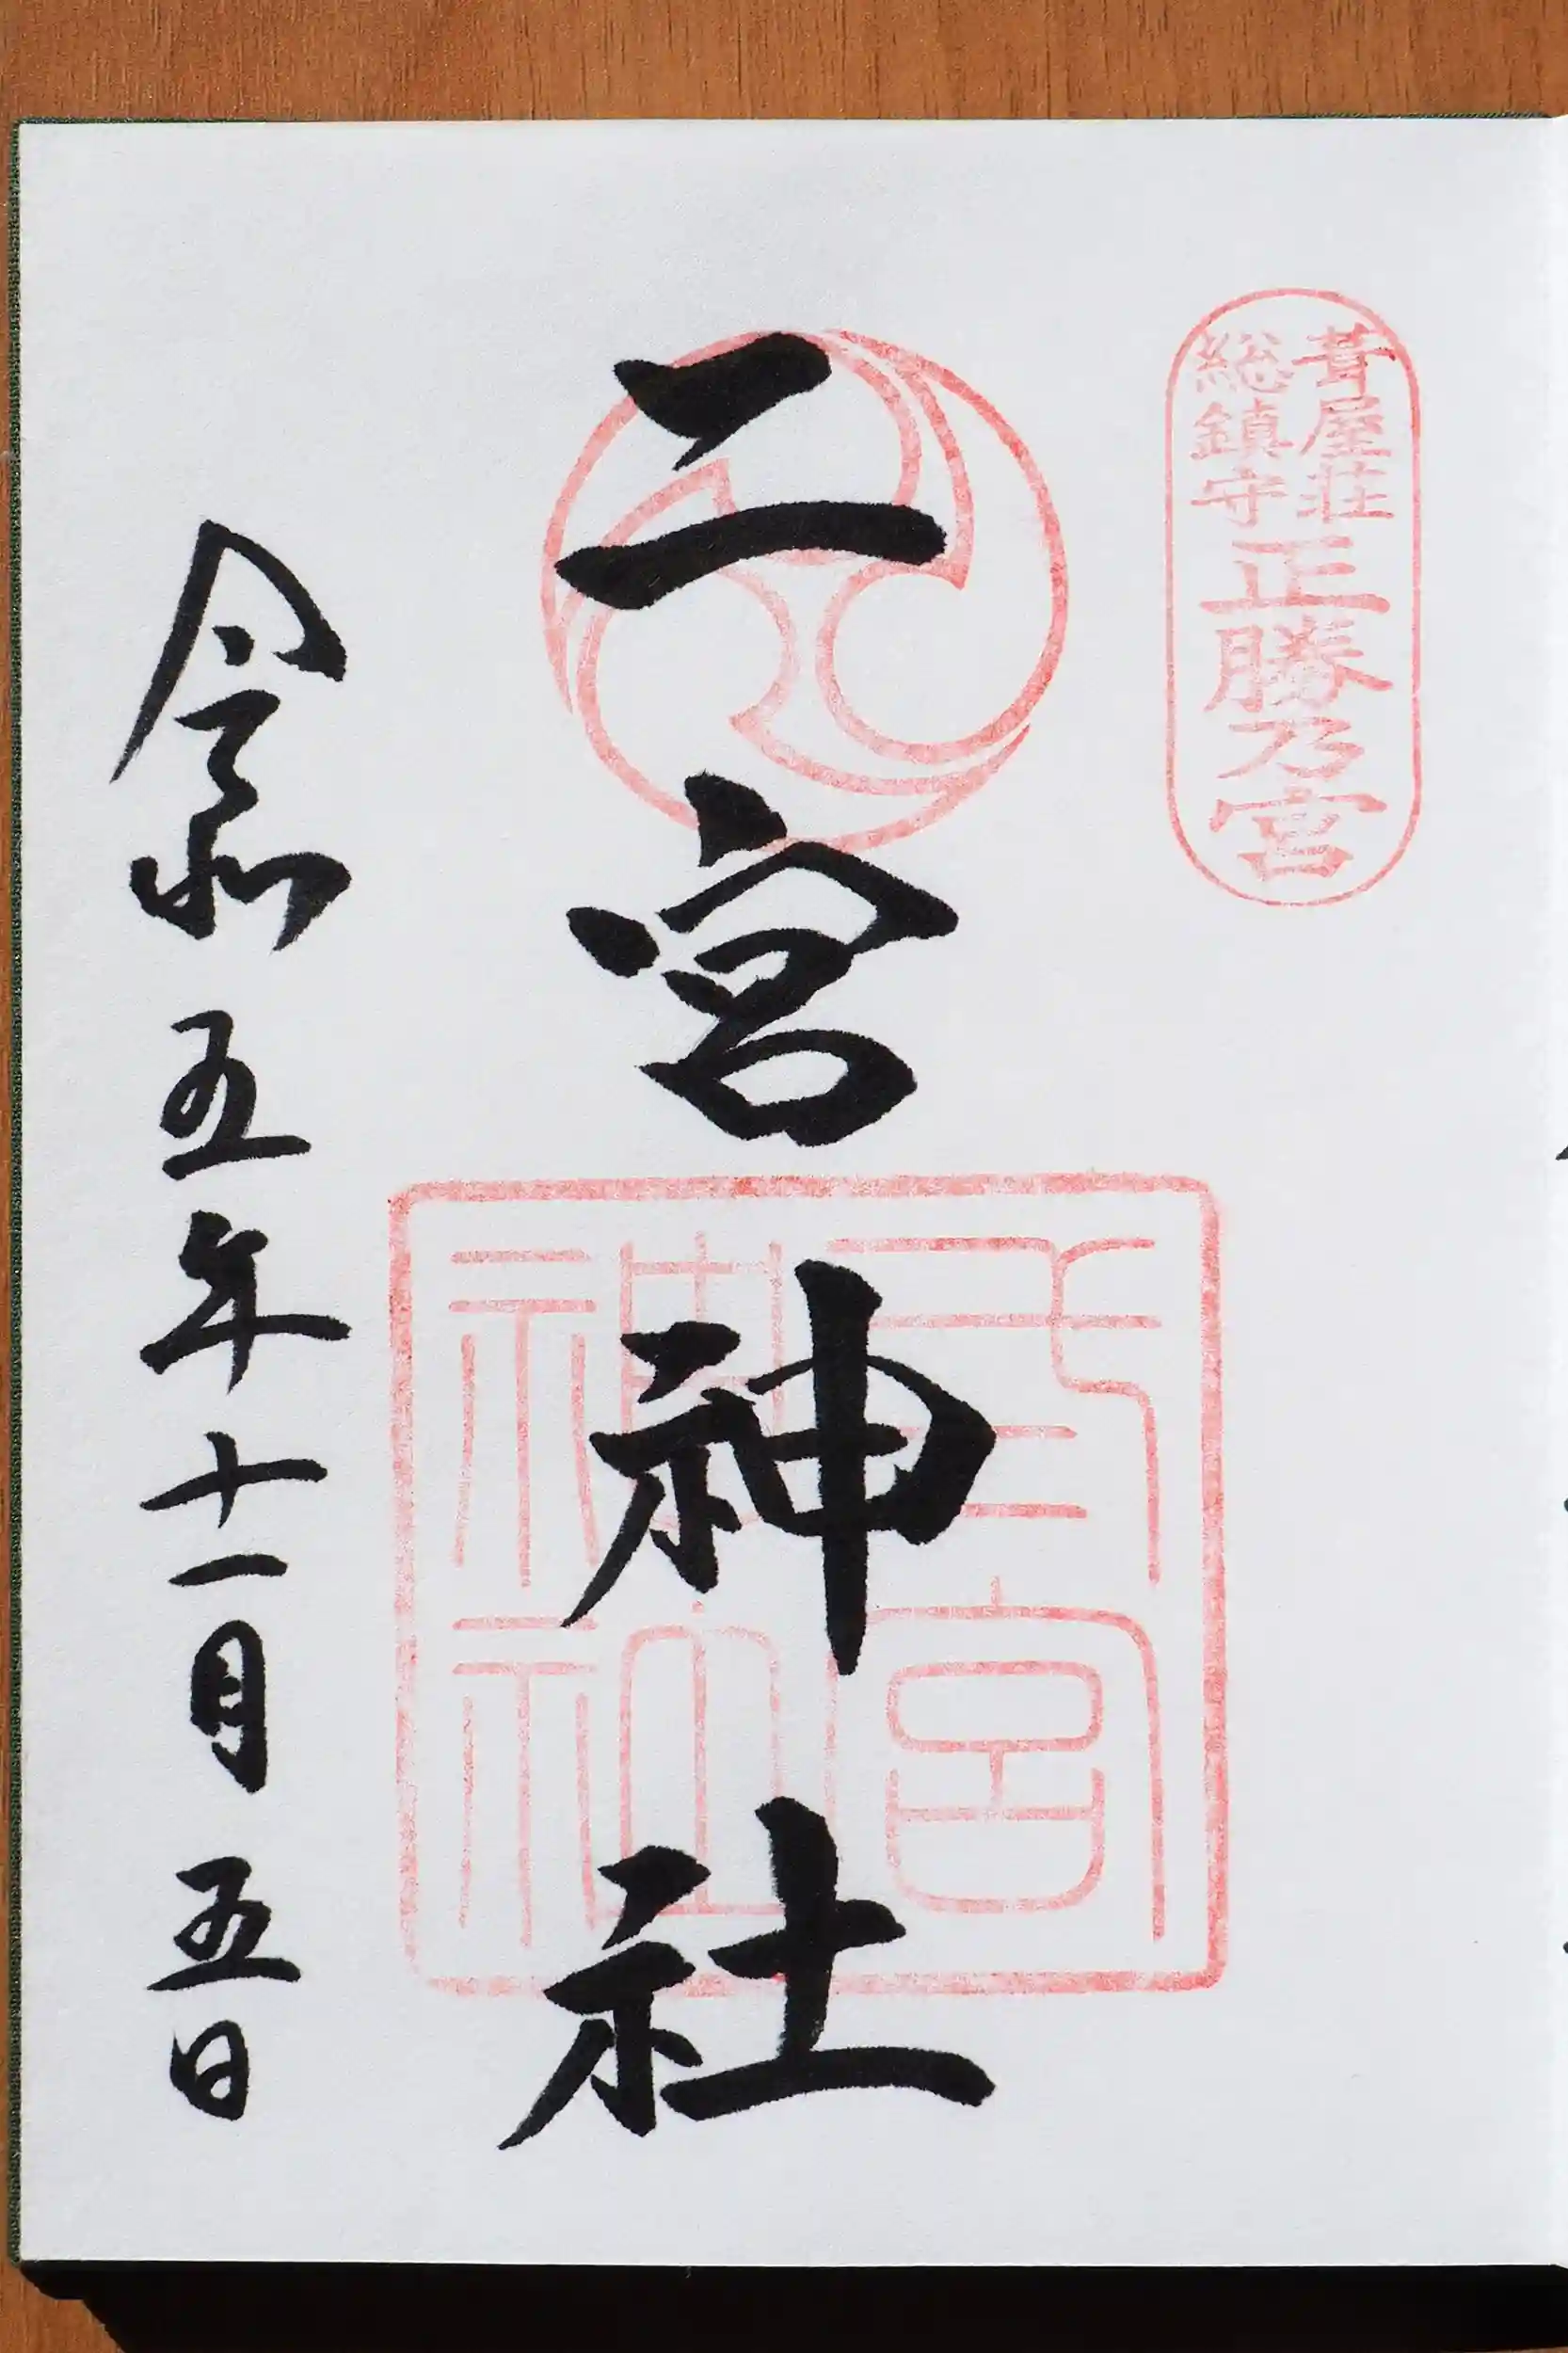 葺屋荘
総鎮守
正勝乃宮
二宮神社
弍宮
神社
令和五年十一月五日